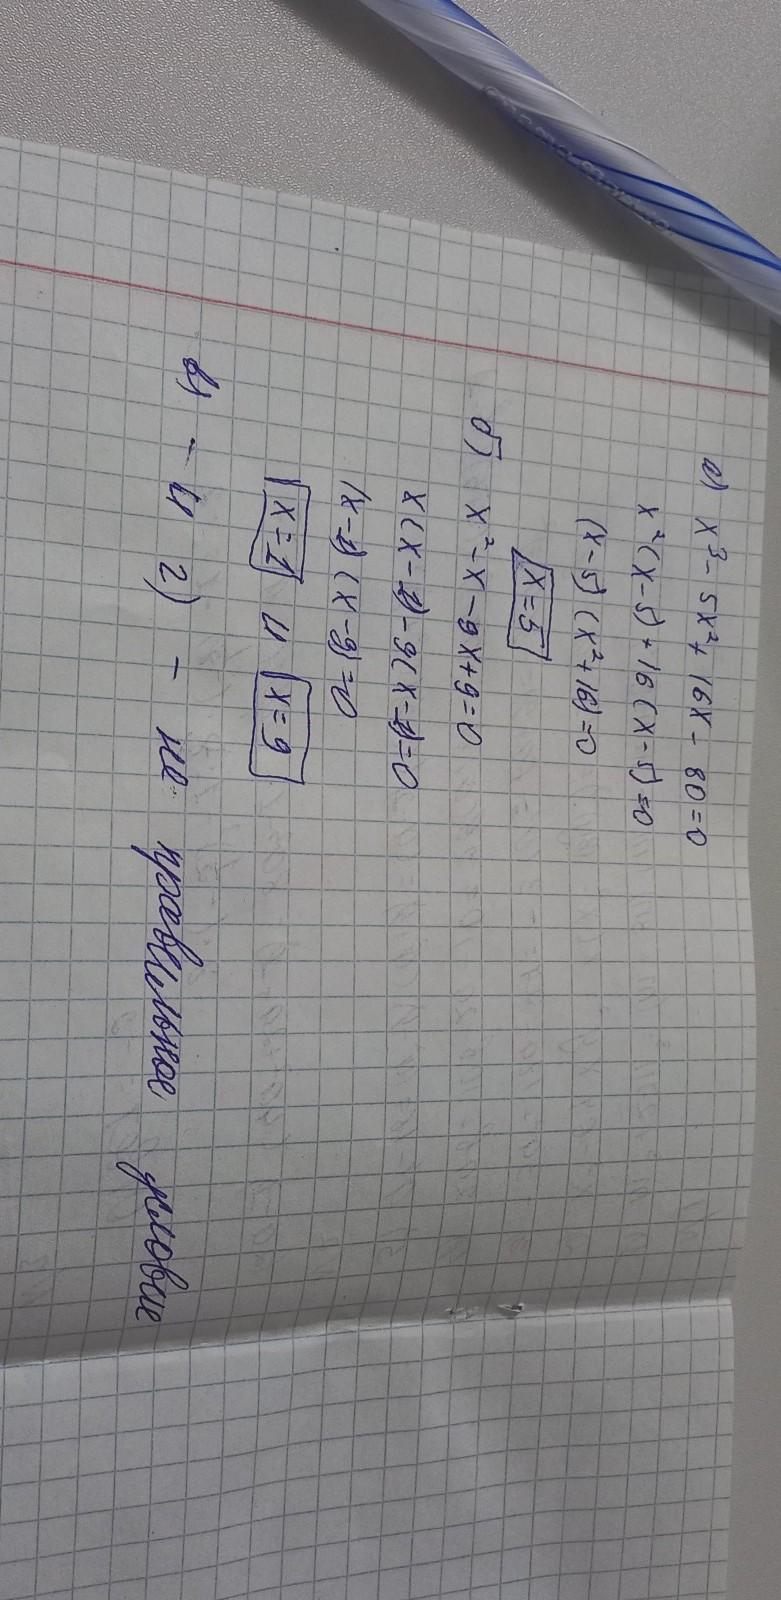 а) x³ - 5x² + 16x - 80 = 0
x²(x-5) + 16(x-5) = 0
(x-5)(x²+16) = 0
x = 5
б) x² - x - 9x + 9 = 0
x(x-1) - 9(x-1) = 0
(x-1)(x-9) = 0
x = 1 и x = 9
в) - и г) - не правильное условие